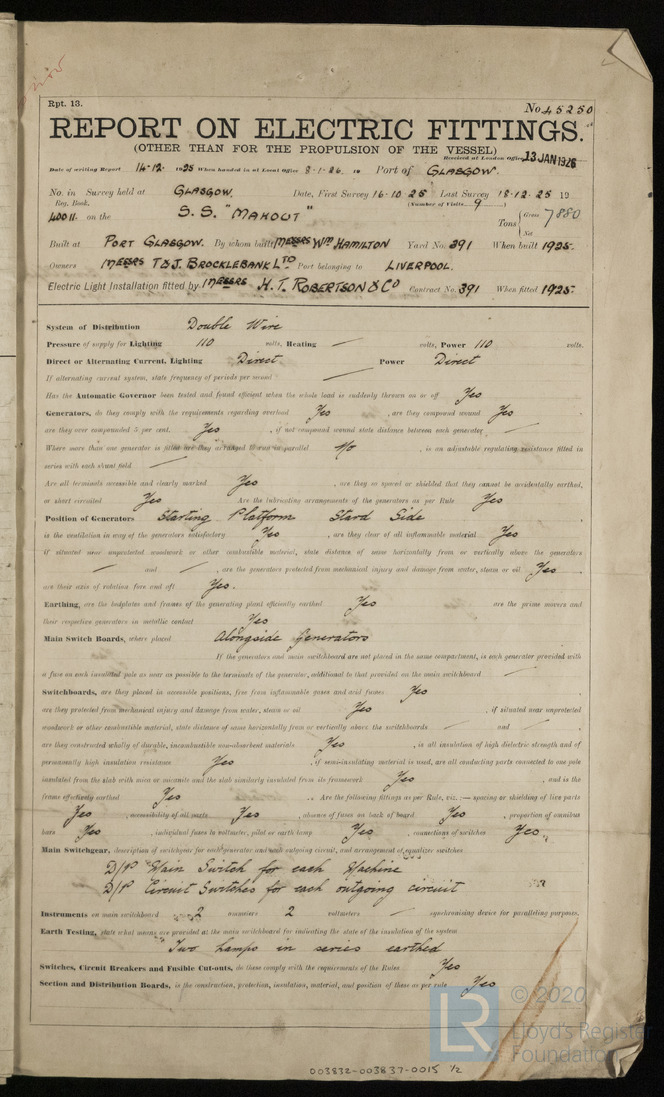 Rpt. 13.
No. 45250
REPORT ON ELECTRIC FITTINGS.
(OTHER THAN FOR THE PROPULSION OF THE VESSEL)
Received at London Office 13 JAN 1926
Date of writing Report 14-12- 1925 When handed in at Local Office 8-1-26. 19 Port of GLASGOW.
No. in Survey held at GLASGOW. Date, First Survey 16-10 25 Last Survey 18-12-25 19
Reg. Book. (Number of Visits 9 )
40011. on the S.S. "MAHOUT" Tons { Gross 7880
Net
Built at PORT GLASGOW. By whom built MESSRS WM HAMILTON Yard No. 391 When built 1925-
Owners MESSRS T & J. BROCKLEBANK LTD Port belonging to LIVERPOOL.
Electric Light Installation fitted by MESSRS H. T. ROBERTSON & CO Contract No. 391 When fitted 1925-
System of Distribution Double Wire
Pressure of supply for Lighting 110 volts, Heating — volts, Power 110 volts.
Direct or Alternating Current, Lighting Direct Power Direct
If alternating current system, state frequency of periods per second —
Has the Automatic Governor been tested and found efficient when the whole load is suddenly thrown on or off Yes
Generators, do they comply with the requirements regarding overload Yes , are they compound wound Yes
are they over compounded 5 per cent. Yes , if not compound wound state distance between each generator —
Where more than one generator is fitted are they arranged to run in parallel No , is an adjustable regulating resistance fitted in
series with each shunt field —
Are all terminals accessible and clearly marked Yes , are they so spaced or shielded that they cannot be accidentally earthed,
or short circuited Yes Are the lubricating arrangements of the generators as per Rule Yes
Position of Generators Starting Platform Stard Side
is the ventilation in way of the generators satisfactory Yes , are they clear of all inflammable material Yes
if situated near unprotected woodwork or other combustible material, state distance of same horizontally from or vertically above the generators
— and — , are the generators protected from mechanical injury and damage from water, steam or oil Yes
are their axis of rotation fore and aft Yes.
Earthing, are the bedplates and frames of the generating plant efficiently earthed Yes are the prime movers and
their respective generators in metallic contact Yes
Main Switch Boards, where placed Alongside Generators
If the generators and main switchboard are not placed in the same compartment, is each generator provided with
a fuse on each insulated pole as near as possible to the terminals of the generator, additional to that provided on the main switchboard —
Switchboards, are they placed in accessible positions, free from inflammable gases and acid fumes Yes
are they protected from mechanical injury and damage from water, steam or oil Yes , if situated near unprotected
woodwork or other combustible material, state distance of same horizontally from or vertically above the switchboards — and —
are they constructed wholly of durable, incombustible non-absorbent materials Yes , is all insulation of high dielectric strength and of
permanently high insulation resistance Yes , if semi-insulating material is used, are all conducting parts connected to one pole
insulated from the slab with mica or micanite and the slab similarly insulated from its framework Yes , and is the
frame effectively earthed Yes Are the following fittings as per Rule, viz.:— spacing or shielding of live parts
Yes , accessibility of all parts Yes , absence of fuses on back of board Yes , proportion of omnibus
bars Yes , individual fuses to voltmeter, pilot or earth lamp Yes , connections of switches Yes
Main Switchgear, description of switchgear for each generator and each outgoing circuit, and arrangement of equalizer switches
D/P Main Switch for each Machine
D/P Circuit Switches for each outgoing circuit
Instruments on main switchboard 2 ammeters 2 voltmeters — synchronising device for paralleling purposes.
Earth Testing, state what means are provided at the main switchboard for indicating the state of the insulation of the system
Two Lamps in series earthed
Switches, Circuit Breakers and Fusible Cut-outs, do these comply with the requirements of the Rules Yes
Section and Distribution Boards, is the construction, protection, insulation, material, and position of these as per rule Yes
LR
© 2020
Lloyd's Register
Foundation
003832-003837-0015 1/2